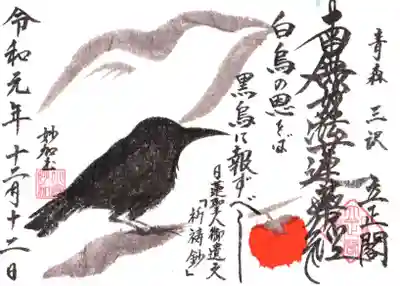 青森 三沢 立正閣
南無妙法蓮華経
白烏の恩をば
黒烏に報ずべし
日蓮聖人御遺文
「祈祷鈔」
令和元年十二月十二日